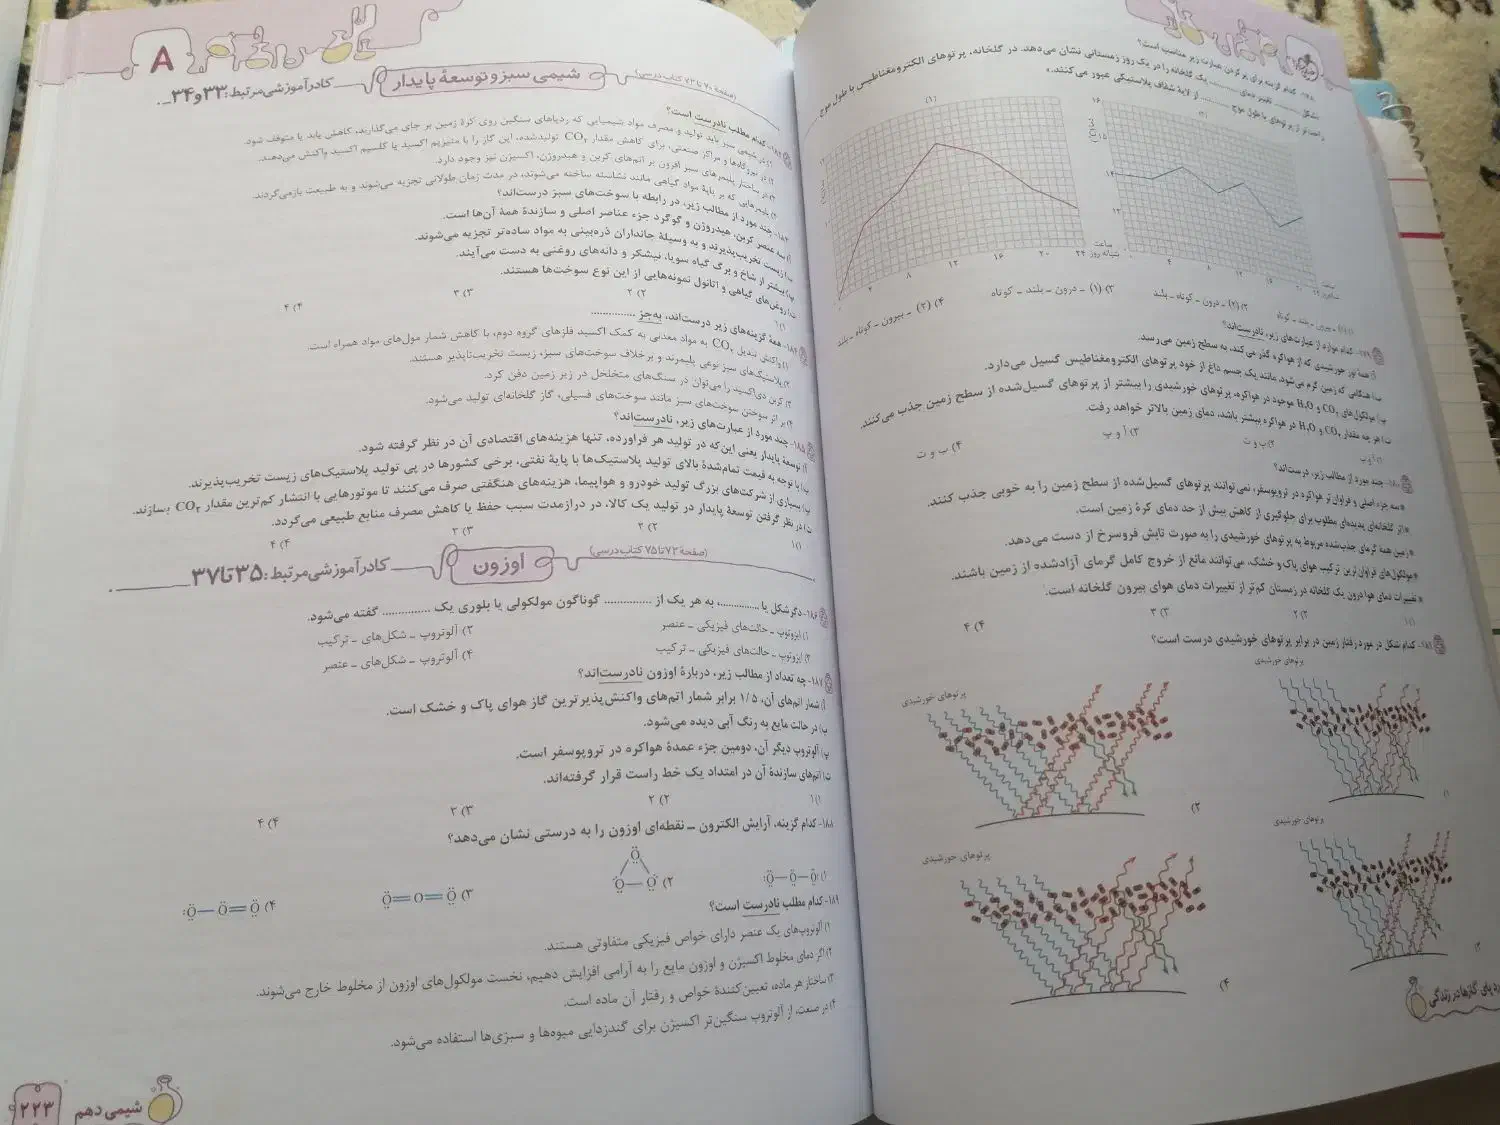 ۱۷۸- کدام گزینه برای پر کردن عبارت زیر مناسب است؟
«شکل ........... تغییر دمای ........... یک گلخانه را در یک روز زمستانی نشان می‌دهد. در گلخانه، پرتوهای الکترومغناطیس با طول موج
........... از لایهٔ شفاف پلاستیکی عبور می‌کنند.»
(۱)
(۲)
ساعت
شبانه روز
۴ ۸ ۱۲ ۱۶ ۲۰ ۲۴
۱) (۱) ـ بیرون ـ بلند ـ کوتاه
۲) (۲) ـ درون ـ کوتاه ـ بلند
۳) (۱) ـ درون ـ بلند ـ کوتاه
۴) (۲) ـ بیرون ـ کوتاه ـ بلند
۱۷۹- کدام موارد از عبارت‌های زیر، نادرست‌اند؟
آ) همهٔ نور خورشیدی که از هواکره گذر می‌کند، به سطح زمین می‌رسد.
ب) هنگامی که زمین گرم می‌شود، مانند یک جسم داغ از خود پرتوهای الکترومغناطیس گسیل می‌دارد.
پ) مولکول‌های CO₂ و H₂O موجود در هواکره، پرتوهای خورشیدی را بیشتر از پرتوهای گسیل‌شده از سطح زمین جذب می‌کنند.
ت) هر چه مقدار CO₂ و H₂O در هواکره بیشتر باشد، دمای زمین بالاتر خواهد رفت.
۱) آ و ب
۲) ب و ت
۳) آ و پ
۴) ب و ت
۱۸۰- چند مورد از مطالب زیر، درست‌اند؟
* سه جزء اصلی و فراوان‌تر هواکره در تروپوسفر، نمی‌توانند پرتوهای گسیل‌شده از سطح زمین را به خوبی جذب کنند.
* اثر گلخانه‌ای پدیده‌ای مطلوب برای جلوگیری از کاهش بیش از حد دمای کرهٔ زمین است.
* زمین همه گرمای جذب‌شده مربوط به پرتوهای خورشیدی را به صورت تابش فروسرخ از دست می‌دهد.
* مولکول‌های فراوان‌ترین ترکیب هوای پاک و خشک، می‌توانند مانع از خروج کامل گرمای آزادشده از زمین باشند.
* تغییرات دمای هوا درون یک گلخانه در زمستان کم‌تر از تغییرات دمای هوای بیرون گلخانه است.
۱) ۱
۲) ۲
۳) ۳
۴) ۴
۱۸۱- کدام شکل در مورد رفتار زمین در برابر پرتوهای خورشیدی درست است؟
پرتوهای خورشیدی
۱)
پرتوهای خورشیدی
۲)
پرتوهای خورشیدی
پرتوهای خورشیدی
۴)
رد پای گازها در زندگی
A
شیمی سبز و توسعهٔ پایدار
(صفحهٔ ۷۰ تا ۷۲ کتاب درسی)
کادر آموزشی مرتبط: ۳۳ و ۳۴
۱۸۲- کدام مطلب نادرست است؟
۱) در شیمی سبز باید تولید و مصرف مواد شیمیایی که ردپاهای سنگین روی کرهٔ زمین بر جای می‌گذارند، کاهش یابد یا متوقف شود.
۲) در نیروگاه‌ها و مراکز صنعتی، برای کاهش مقدار CO₂ تولیدشده، این گاز را با منیزیم اکسید یا کلسیم اکسید واکنش می‌دهند.
۳) در ساختار پلیمرهای سبز افزون بر اتم‌های کربن و هیدروژن، اکسیژن نیز وجود دارد.
۴) پلیمرهایی که بر پایهٔ مواد گیاهی مانند نشاسته ساخته می‌شوند، در مدت زمان طولانی تجزیه می‌شوند و به طبیعت بازمی‌گردند.
۱۸۳- چند مورد از مطالب زیر، در رابطه با سوخت‌های سبز درست‌اند؟
آ) سه عنصر کربن، هیدروژن و گوگرد جزء عناصر اصلی و سازندهٔ همهٔ آن‌ها است.
ب) زیست تخریب‌پذیرند و به وسیلهٔ جانداران ذره‌بینی به مواد ساده‌تر تجزیه می‌شوند.
پ) بیشتر از شاخ و برگ گیاه سویا، نیشکر و دانه‌های روغنی به دست می‌آیند.
ت) روغن‌های گیاهی و اتانول نمونه‌هایی از این نوع سوخت‌ها هستند.
۱) ۱
۲) ۲
۳) ۳
۴) ۴
۱۸۴- همهٔ گزینه‌های زیر درست‌اند، به‌جز ...............
۱) واکنش تبدیل CO₂ به مواد معدنی به کمک اکسید فلزهای گروه دوم، با کاهش شمار مول‌های مواد همراه است.
۲) پلاستیک‌های سبز نوعی پلیمرند و برخلاف سوخت‌های سبز، زیست تخریب‌ناپذیر هستند.
۳) کربن دی‌اکسید را می‌توان در سنگ‌های متخلخل در زیر زمین دفن کرد.
۴) بر اثر سوختن سوخت‌های سبز مانند سوخت‌های فسیلی، گاز گلخانه‌ای تولید می‌شود.
۱۸۵- چند مورد از عبارت‌های زیر، نادرست‌اند؟
آ) توسعهٔ پایدار یعنی این‌که در تولید هر فراورده، تنها هزینه‌های اقتصادی آن در نظر گرفته شود.
ب) با توجه به قیمت تمام‌شدهٔ بالای تولید پلاستیک‌ها با پایهٔ نفتی، برخی کشورها در پی تولید پلاستیک‌های زیست تخریب‌پذیرند.
پ) بسیاری از شرکت‌های بزرگ تولید خودرو و هواپیما، هزینه‌های هنگفتی صرف می‌کنند تا موتورهایی با انتشار کم‌ترین مقدار CO₂ بسازند.
ت) در نظر گرفتن توسعهٔ پایدار در تولید یک کالا، در درازمدت سبب حفظ یا کاهش مصرف منابع طبیعی می‌گردد.
۱) ۱
۲) ۲
۳) ۳
۴) ۴
اوزون
(صفحهٔ ۷۲ تا ۷۵ کتاب درسی)
کادر آموزشی مرتبط: ۳۵ تا ۳۷
۱۸۶- دگرشکل یا .............. به هر یک از .............. گوناگون مولکولی یا بلوری یک .............. گفته می‌شود.
۱) ایزوتوپ ـ حالت‌های فیزیکی ـ عنصر
۳) آلوتروپ ـ شکل‌های ـ ترکیب
۲) ایزوتوپ ـ حالت‌های فیزیکی ـ ترکیب
۴) آلوتروپ ـ شکل‌های ـ عنصر
۱۸۷- چه تعداد از مطالب زیر، دربارهٔ اوزون نادرست‌اند؟
آ) شمار اتم‌های آن، ۱/۵ برابر شمار اتم‌های واکنش‌پذیرترین گاز هوای پاک و خشک است.
ب) در حالت مایع به رنگ آبی دیده می‌شود.
پ) آلوتروپ دیگر آن، دومین جزء عمدهٔ هواکره در تروپوسفر است.
ت) اتم‌های سازندهٔ آن در امتداد یک خط راست قرار گرفته‌اند.
۱) ۱
۲) ۲
۳) ۳
۴) ۴
۱۸۸- کدام گزینه، آرایش الکترون ـ نقطه‌ای اوزون را به درستی نشان می‌دهد؟
۱) :Ö—Ö—Ö:
۲) O O O
۳) Ö=O=Ö
۴) :Ö—Ö=Ö
۱۸۹- کدام مطلب نادرست است؟
۱) آلوتروپ‌های یک عنصر دارای خواص فیزیکی متفاوتی هستند.
۲) اگر دمای مخلوط اکسیژن و اوزون مایع را به آرامی افزایش دهیم، نخست مولکول‌های اوزون از مخلوط خارج می‌شوند.
۳) ساختار هر ماده، تعیین‌کنندهٔ خواص و رفتار آن ماده است.
۴) در صنعت، از آلوتروپ سنگین‌تر اکسیژن برای گندزدایی میوه‌ها و سبزی‌ها استفاده می‌شود.
شیمی دهم
۲۲۳